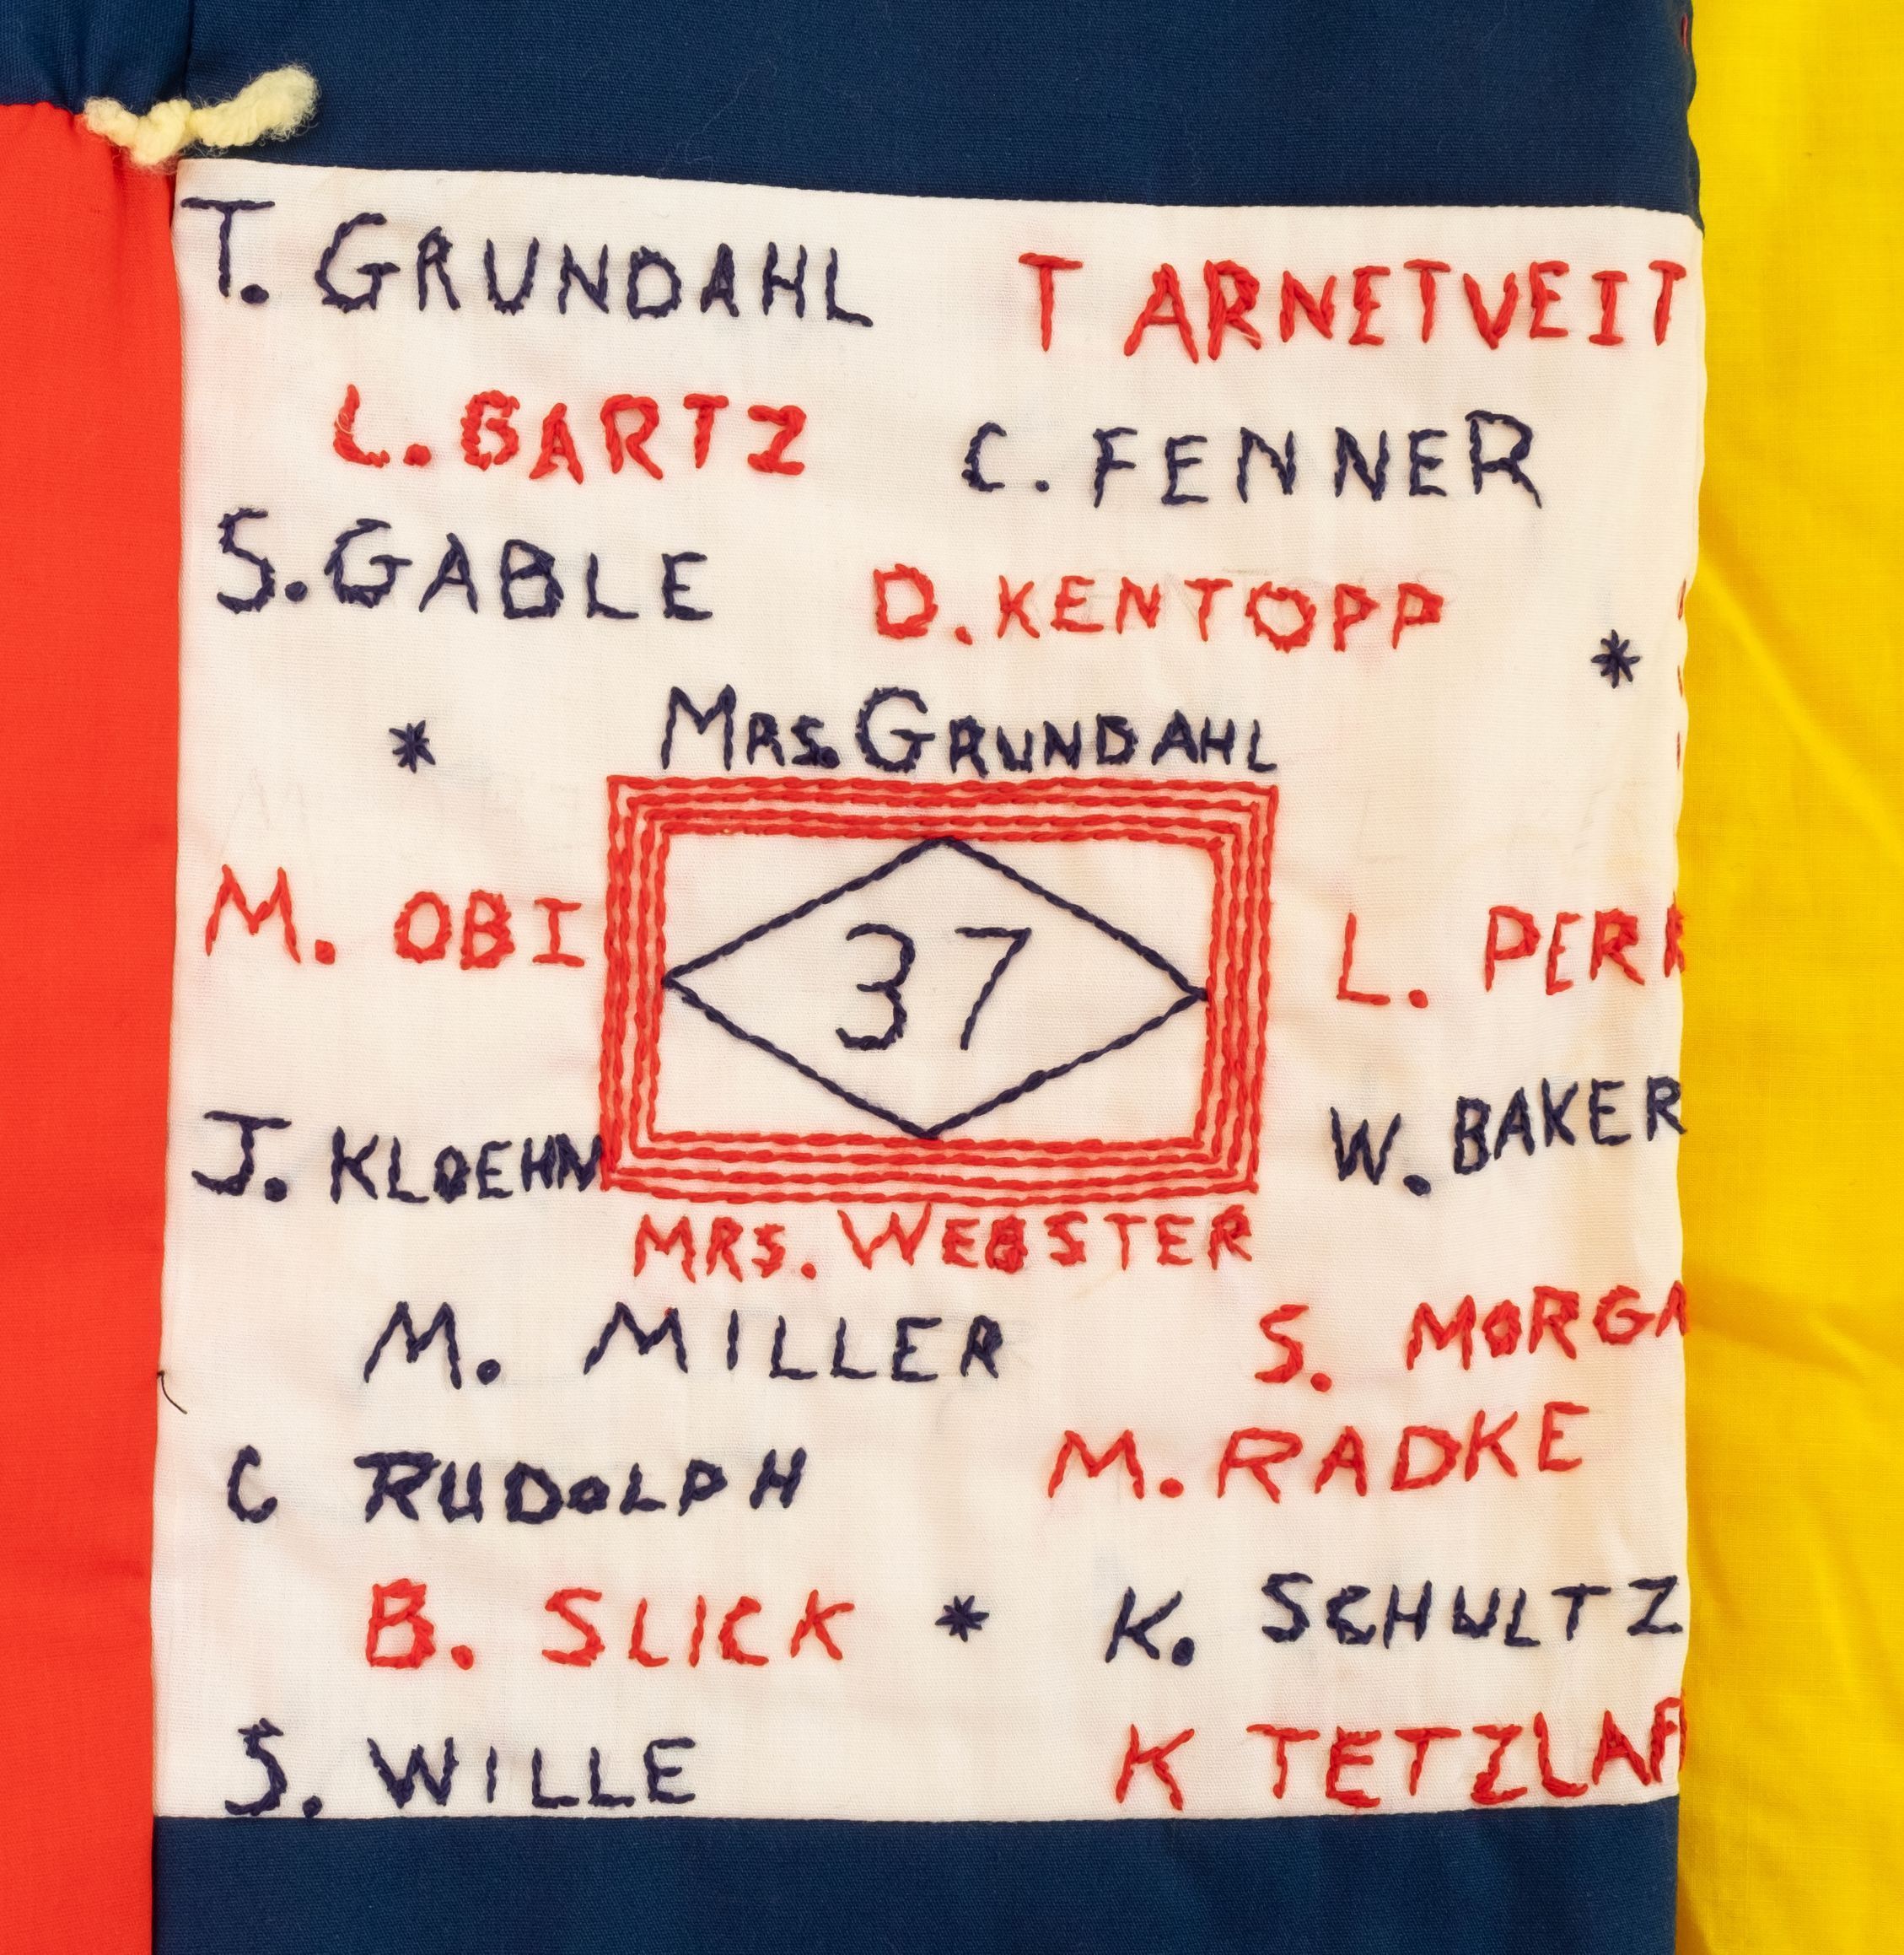 T. GRUNDAHL T ARNETVEIT
L. BARTZ C. FENNER
S. GABLE D. KENTOPP
* *
MRS. GRUNDAHL
M. OBI 37 L.
J. KLOEHN W. BAKER
MRS. WEBSTER
M. MILLER S.
C RUDOLPH M. RADKE
B. SLICK * K. SCHULTZ
S. WILLE K